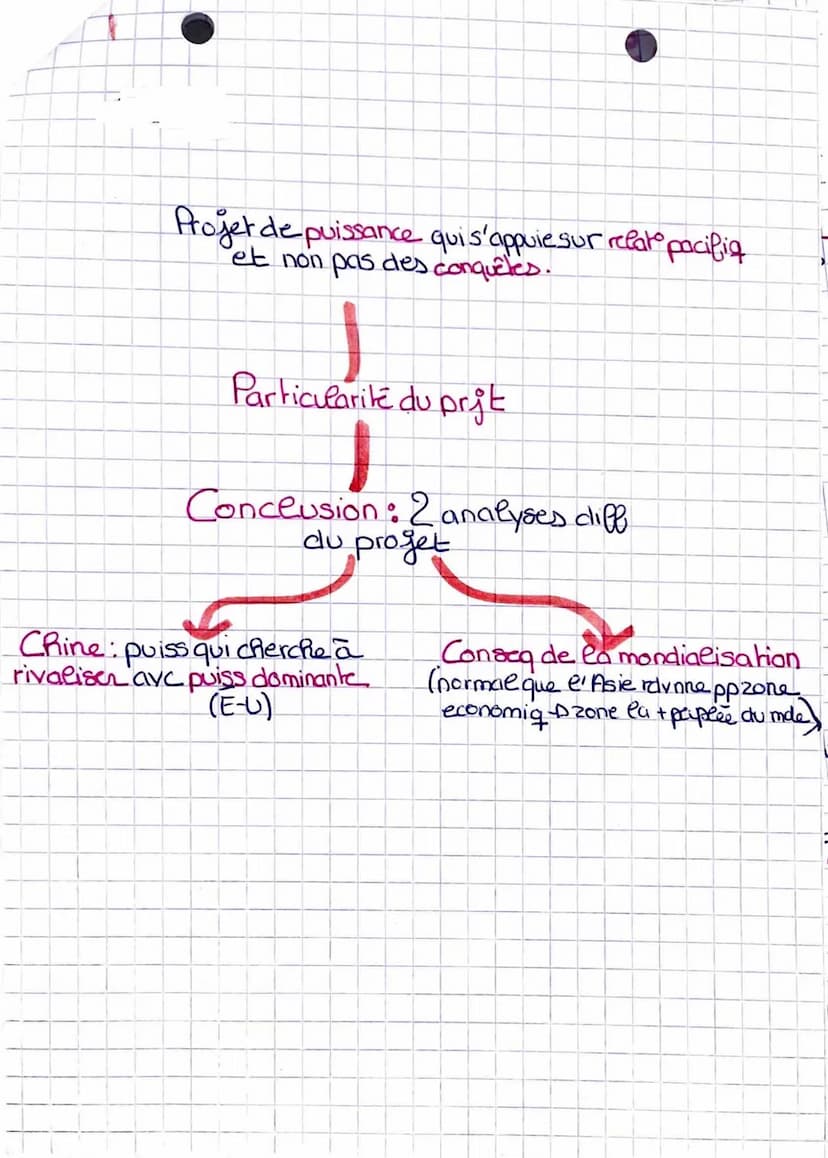 Projet de puissance qui s'appuie sur relat° pacifiq
et non pas des conquêtes.
Particularité du prjt
Conclusion : 2 analyses diff
du projet
Chine : puiss qui cherche à
rivaliser avc puiss dominante
(E-U)
Conseq de la mondialisation
(normal que l'Asie rdvnne pp zone
economiq → zone la + peuplée du mde)